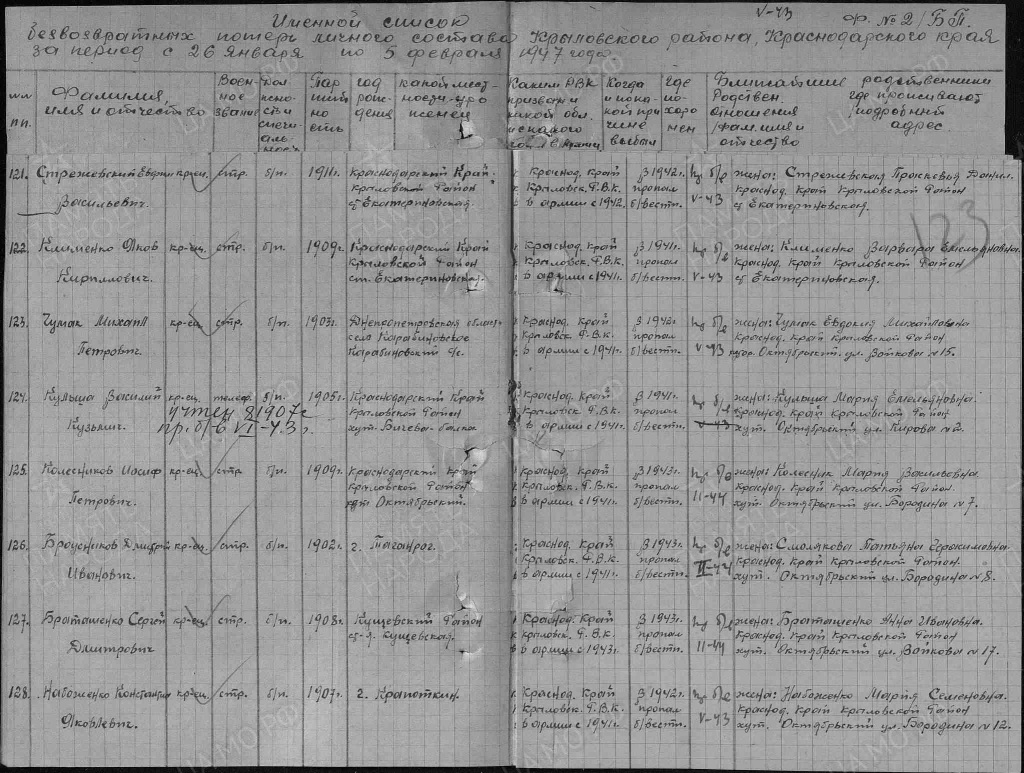 V-43 Ф. №2/БП.
Именной список
безвозвратных потерь личного состава Крыловского района, Краснодарского края
за период с 26 января по 5 февраля 1947 года
№№ пп.
Фамилия, имя и отчество
Воен-ное звание
Дол-жно-сть и специ-аль-ность
Пар-тий-но сть
год рож-дения
какой мест-ности уро женец
Каким РВК призван и какой обл.
Когда и по ка-кой при чине выбыл
где по-хоро нен
Ближайшие родственники
Родствен. отношения /фамилия/ отчество
где проживают /подробный адрес.
121. Стрежевский Евдоким кр-ец. стр. б/п. 1911г. Краснодарский Край Краснод. край в 1942г. пр б/в жена: Стрежевская Прасковья Данил.
Васильевич. Крыловской Район Крыловск. Р.В.К. пропал V-43 Краснод. Край Крыловской Район
ст Екатериновская в армии с 1942. б/вести. ст Екатериновская.
123
122. Клименко Яков кр-ец. стр. б/п. 1909г. Краснодарский Край Краснод. край в 1941г. пр б/в жена: Клименко Варвара Емельяновна
Кирилович. Крыловской Район Крыловск. Р.В.К. пропал V-43 Краснод. Край Крыловской Район
ст. Екатериновская в армии с 1941г. б/вести. ст Екатериновская.
123. Чумак Михаил кр-ец. стр. б/п. 1903г. Днепропетровская област Краснод. Край в 1942г. пр б/в жена: Чумак Евдокия Михайловна
Петрович. село Карабиновское Крыловск. Р.В.К. пропал V-43 Краснод. Край Крыловской Район
Карабиновский с/с. в армии с 1941г. б/вести. хутор. Октябрьский. ул. Войкова №15.
124. Кульша Василий кр-ец. телеф. б/п. 1905г. Краснодарский Край Краснод. край в 1941г. пр б/в жена: Кульша Мария Емельяновна.
учтен в 1907г
Кузьмич. Крыловской Район Крыловск. Р.В.К. пропал V-43 Краснод. край Крыловской Район
пр. б/в VI-43г.
хут. Вичева-балка в армии с 1941г. б/вести. хут. Октябрьский ул Кирова №2.
125. Колесников Иосиф кр-ец. стр б/п. 1909г. Краснодарский край Краснод. край в 1943г. пр б/в жена: Колесник Мария Васильевна
Петрович. Крыловской Район Крыловск. Р.В.К. пропал II-44 Краснод. Край Крыловской Район
хут Октябрьский. в армии с 1941г. б/вести. хут. Октябрьский ул. Бородина №7.
126. Броусников Дмитрий кр-ец. стр. б/п. 1902г. г. Таганрог. Краснод. Край в 1943г. пр б/в жена: Смолякова Татьяна Герасимовна.
Иванович. Крыловск. Р.В.К. пропал II-44 Краснод. край Крыловской Район.
в армии с 1941г. б/вести хут. Октябрьский ул. Бородина №8.
127. Браташенко Сергей кр-ец. стр. б/п. 1908г. Кущевский Район Краснод. Край в 1943г. пр б/в жена: Браташенко Анна Ивановна.
Дмитрович ст-я. Кущевская. Крыловск. Р.В.К. пропал II-44 Краснод. Край Крыловской Район
в армии с 1943г. б/вести хут. Октябрьский ул. Войкова №17.
128. Набоженко Константин кр-ец. стр. б/п. 1907г. г. Кропоткин. Краснод. Край в 1942г. пр б/в жена: Набоженко Мария Семеновна.
Яковлевич. Крыловск. Р.В.К. пропал V-43 Краснод. Край Крыловской Район
в армии с 1941г. б/вести хут. Октябрьский ул. Бородина №12.